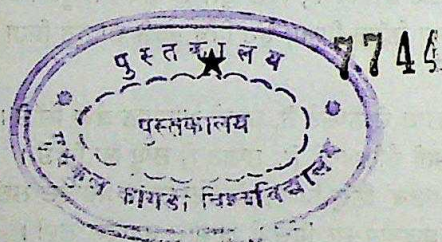 पुस्तकालय
7744
पुस्तकालय
गुरुकुल कांगड़ी विश्वविद्यालय